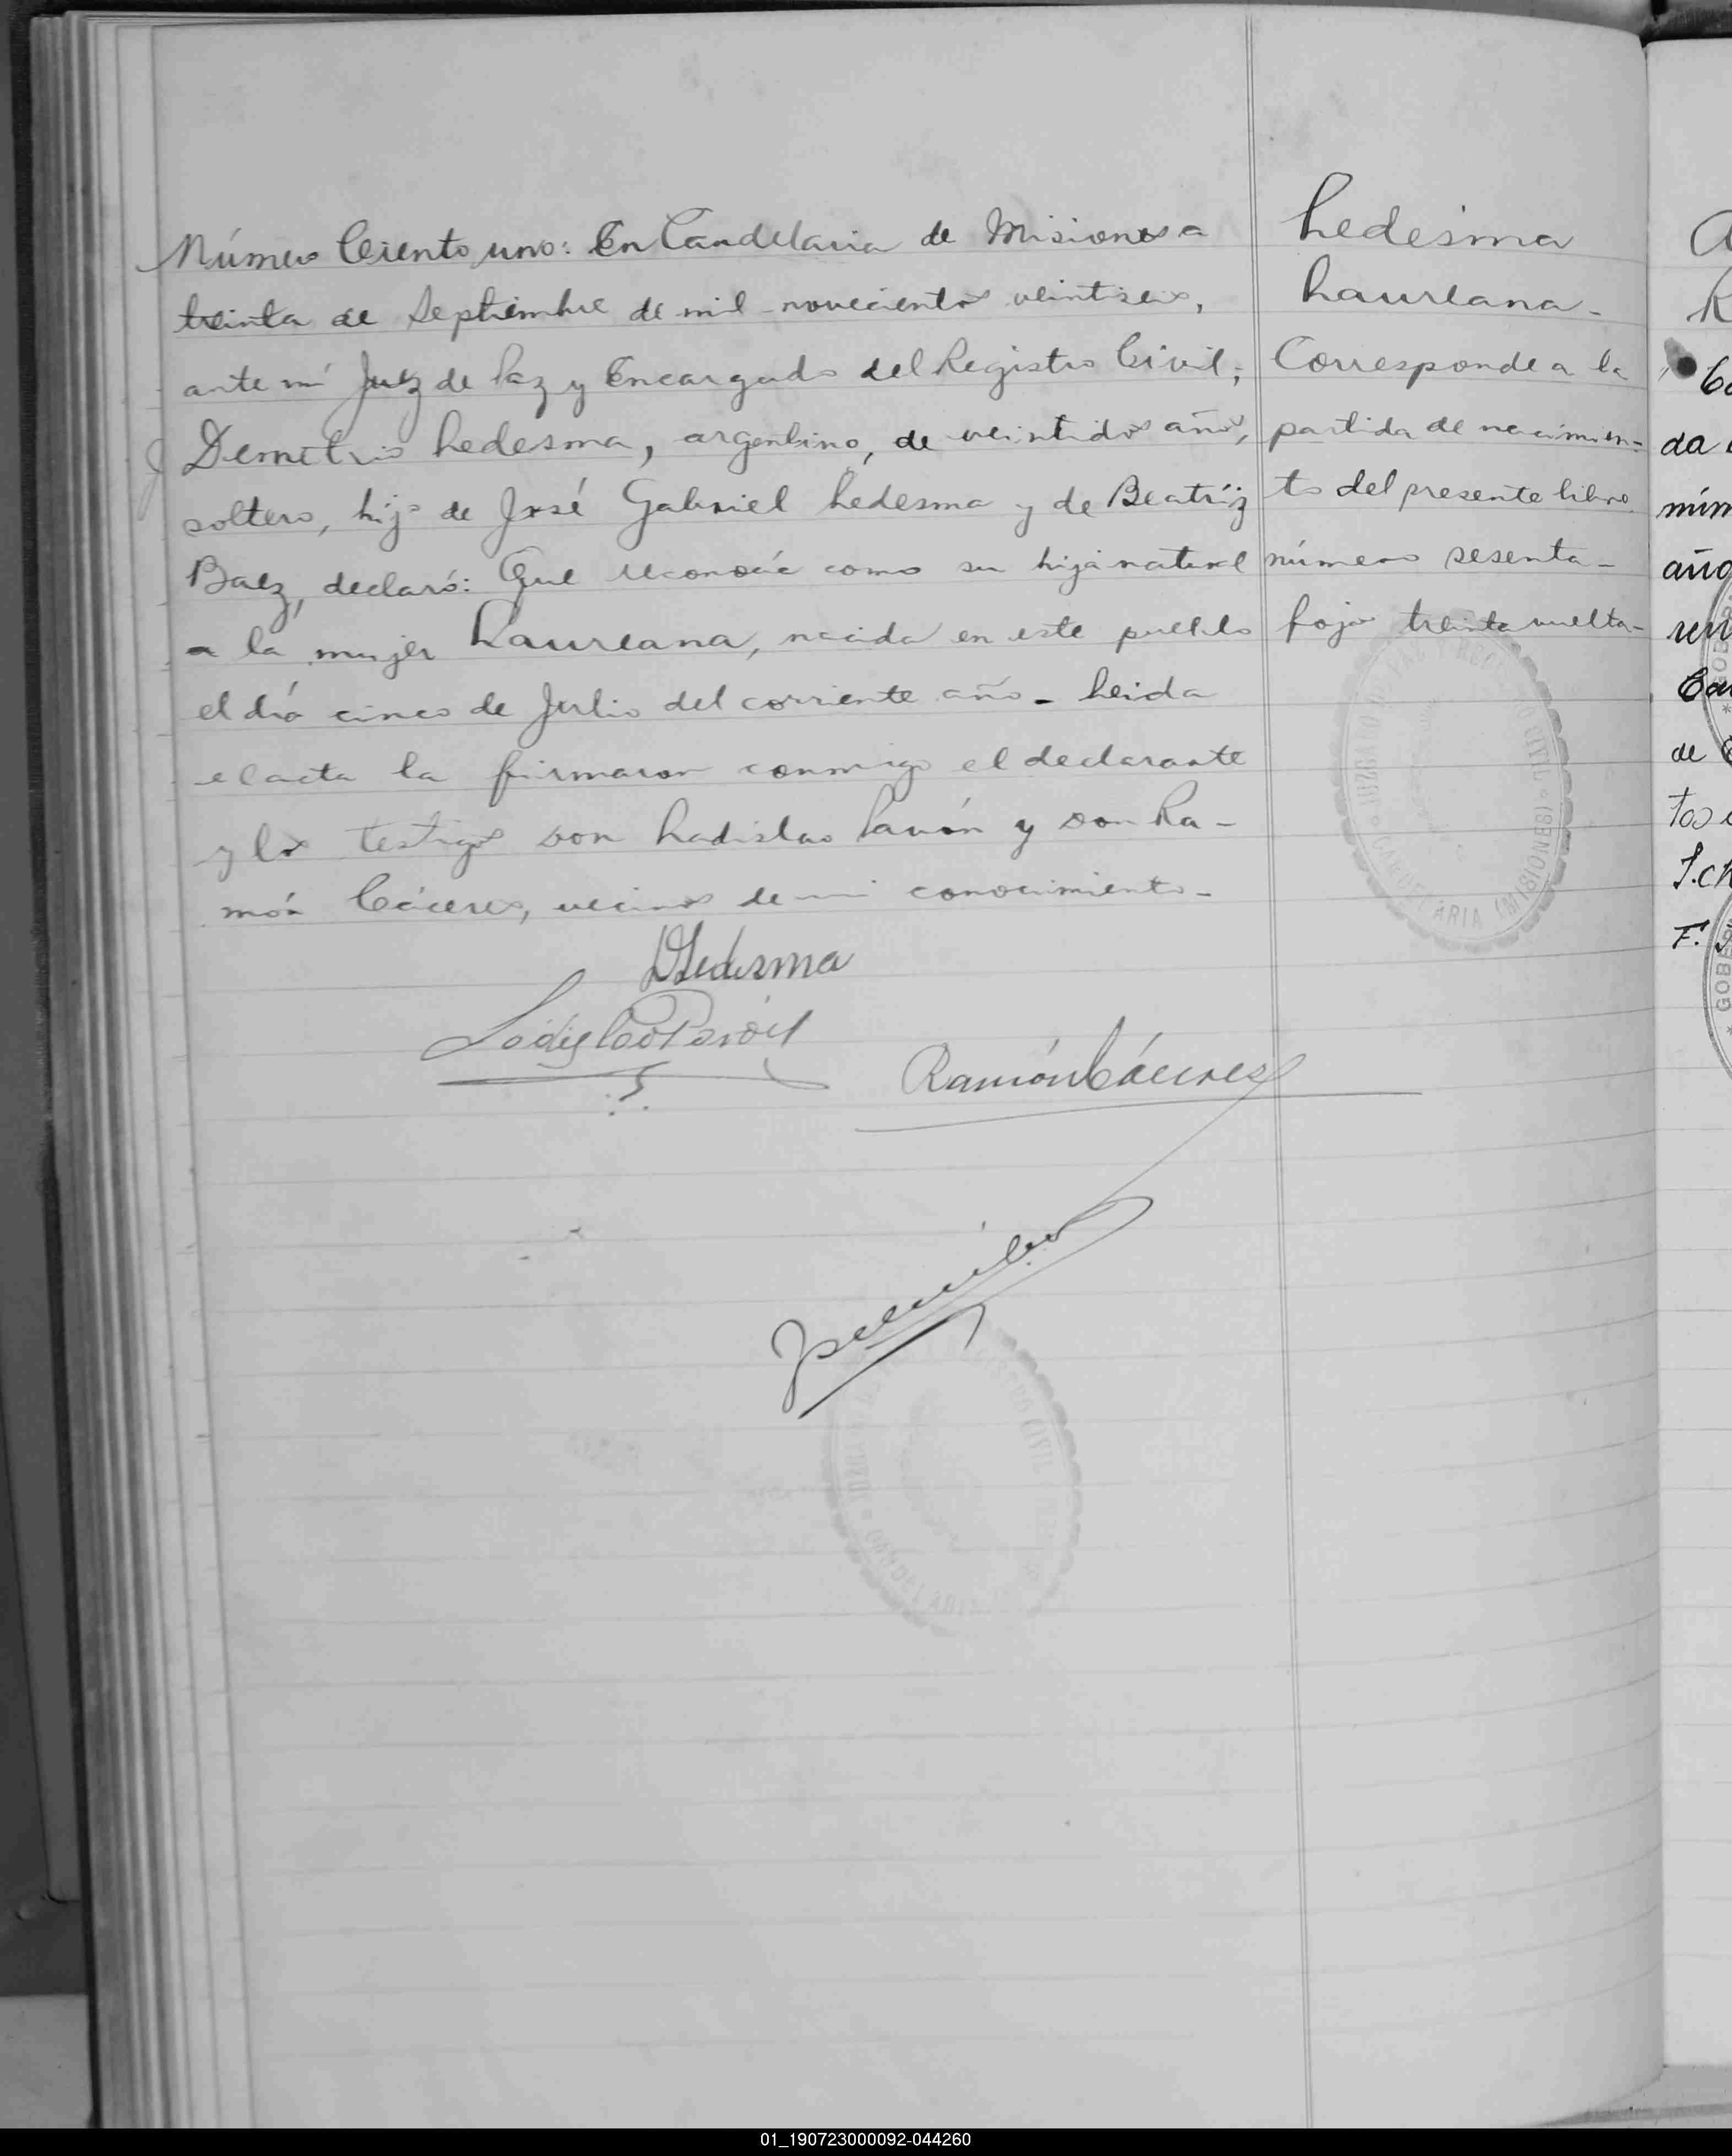 Número Ciento uno: En Candelaria de Misiones a
treinta de Septiembre de mil novecientos veintiseis,
ante mí Juez de Paz y Encargado del Registro Civil;
Demetrio Ledesma, argentino, de veintidos años,
soltero, hijo de José Gabriel Ledesma y de Beatríz
Baez, declaró: Que reconocía como su hija natural
a la mujer Laureana, nacida en este pueblo
el día cinco de Julio del corriente año - Leida
el acta la firmaron conmigo el declarante
y los testigos don Ladislao Pavón y don Ra-
món Cáceres, vecinos de mi conocimiento -
DLedesma
Ladislao Pavón
Ramón Cáceres
Ledesma
Laureana -
Corresponde a la
partida de nacimien-
to del presente libro
número sesenta -
foja treinta vuelta -
JUZGADO DE PAZ Y REGISTRO CIVIL
CANDELARIA (MISIONES)
CIVIL
CANDELARIA
da
mím
año
de
F.
GOBE
01_190723000092-044260